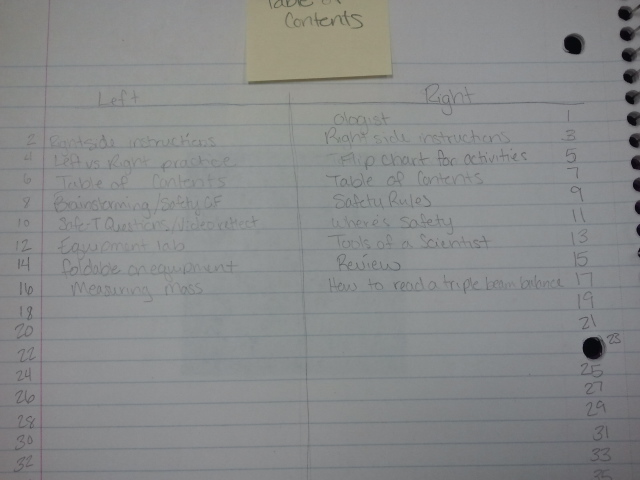 Table of
Contents
Left Right
ologist 1
2 Rightside instructions Right side instructions 3
4 Left vs Right practice Flip Chart for activities 5
6 Table of Contents Table of Contents 7
8 Brainstorming/Safety GF Safety Rules 9
10 Safe-T Questions/Video retest Where's Safety 11
12 Equipment lab Tools of a Scientist 13
14 foldable on equipment Review 15
16 Measuring mass How to read a triple beam balance 17
18 19
20 21
22 23
24 25
26 27
28 29
30 31
32 33
35